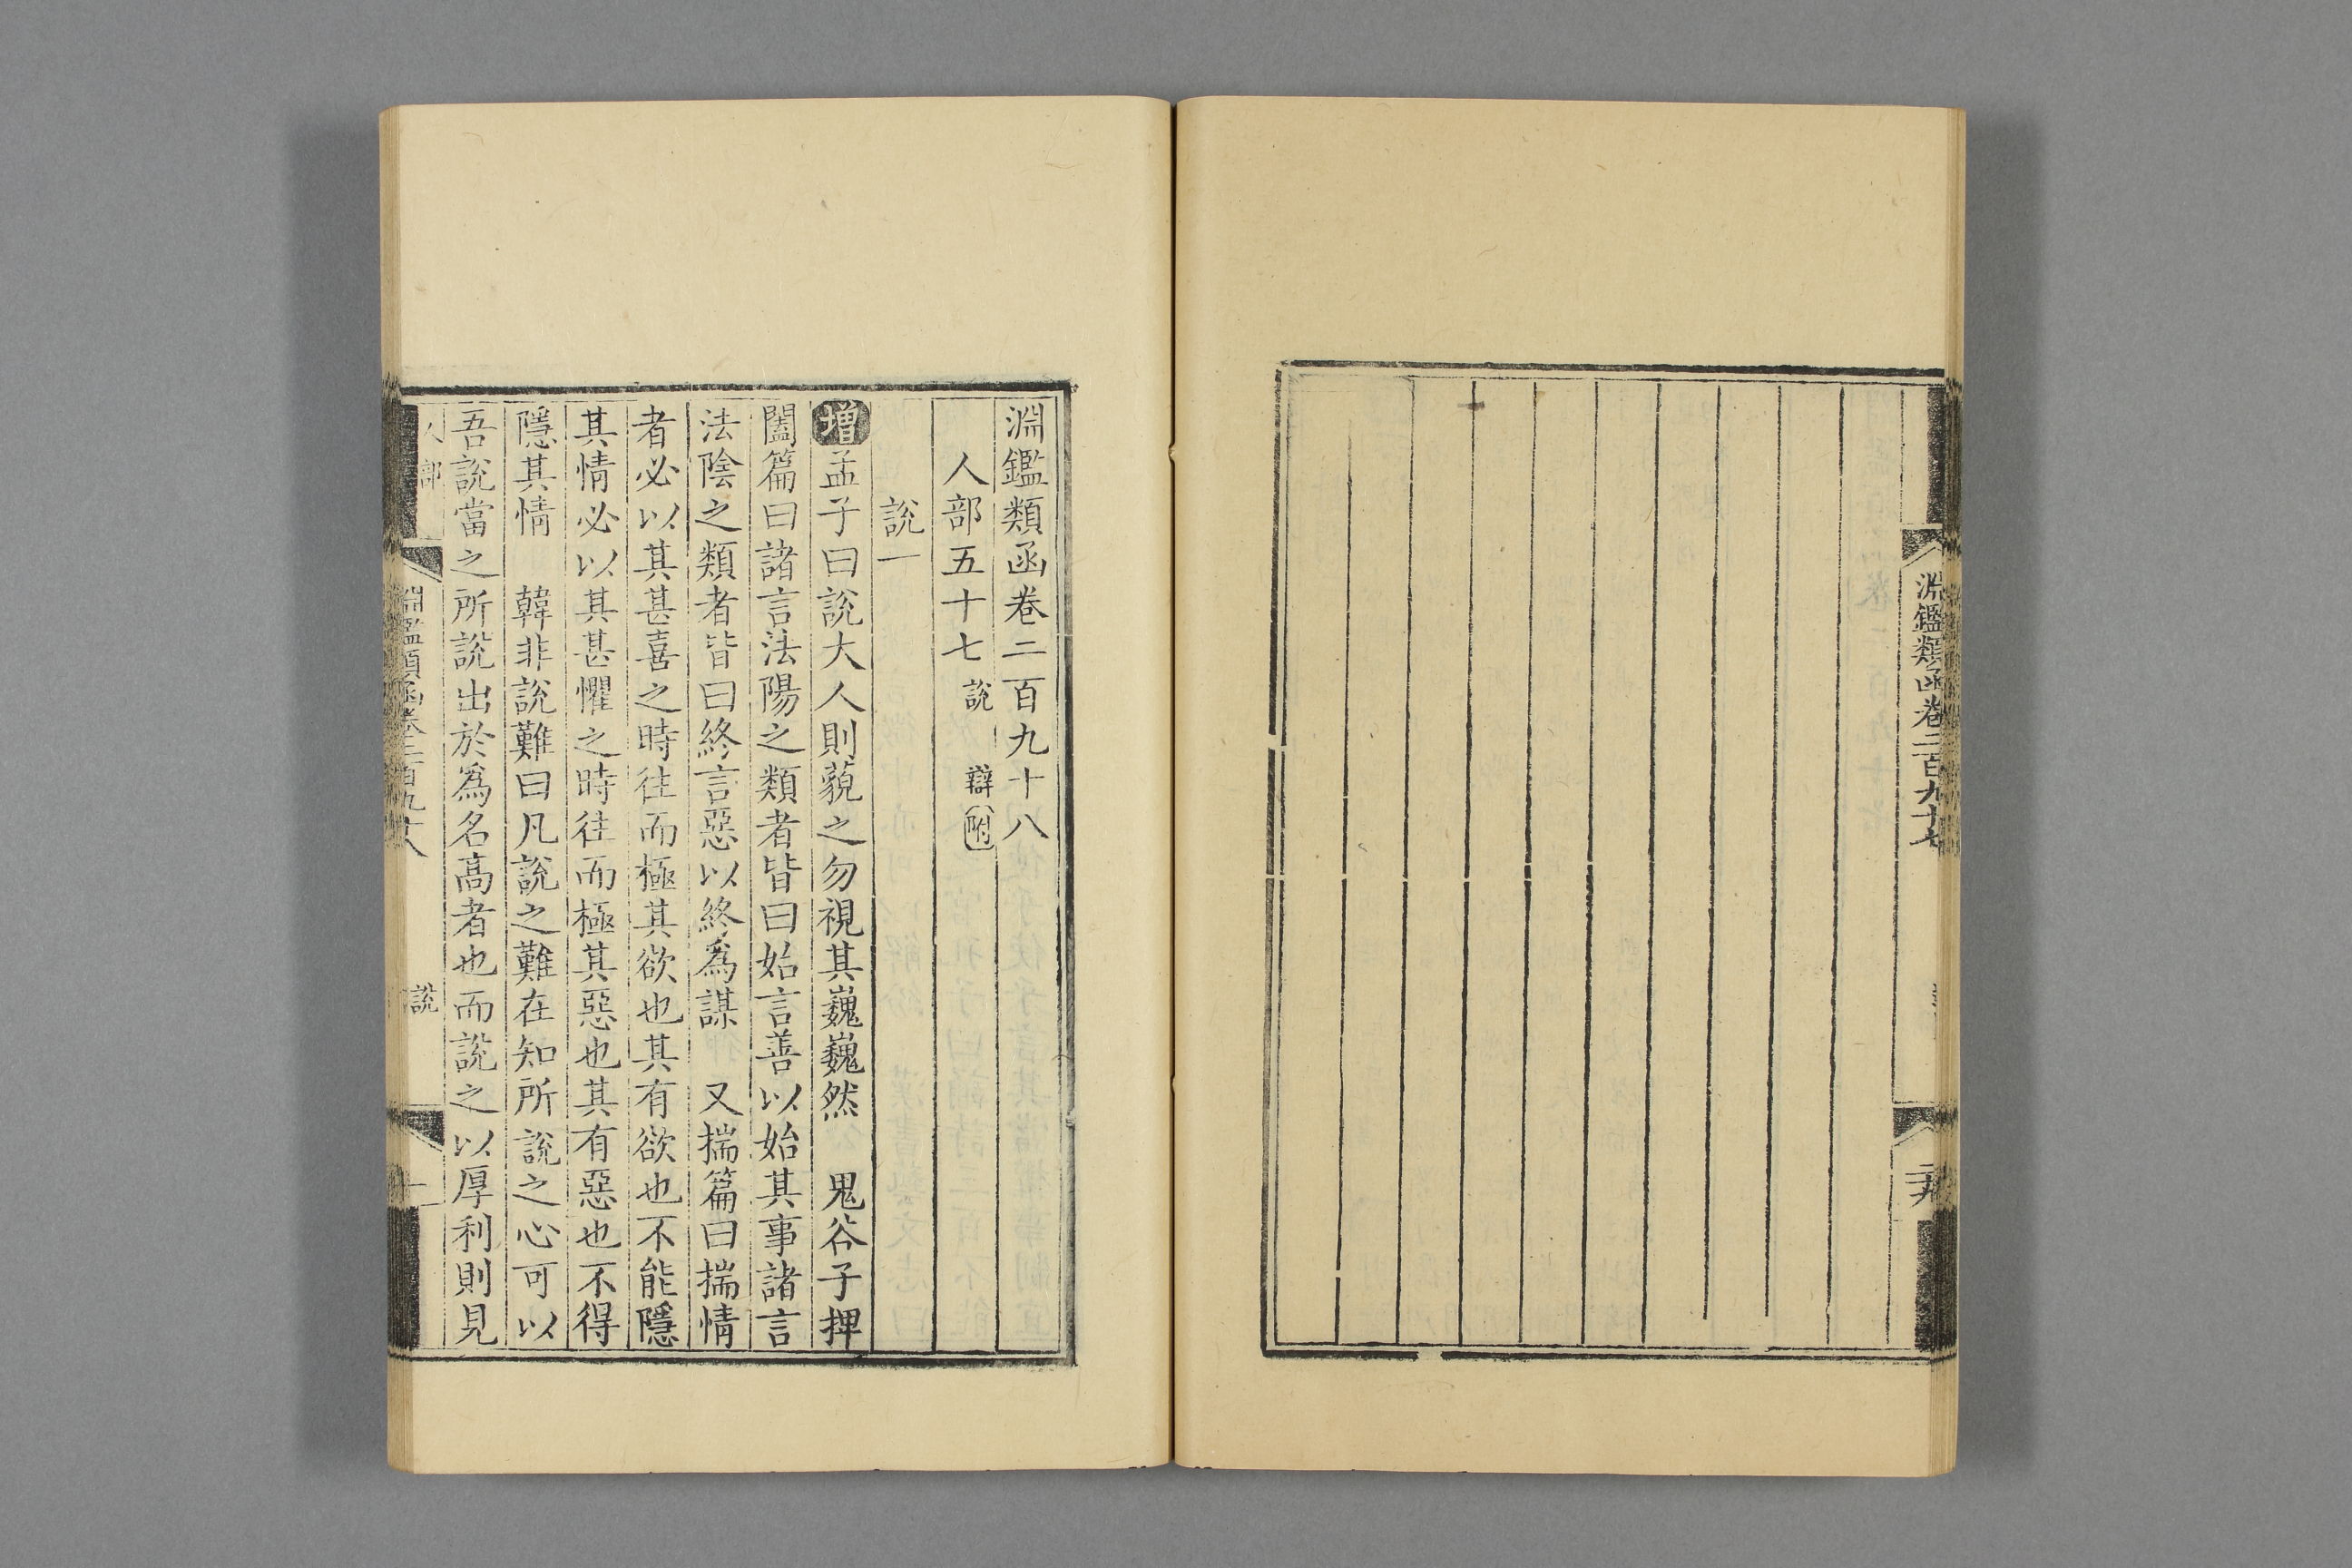 淵鑑類函卷二百九十七
淵鑑類函卷二百九十八
人部五十七 說 辯 附
說一
增 孟子曰說大人則藐之勿視其巍巍然 鬼谷子捭
闔篇曰諸言法陽之類者皆曰始言善以始其事諸言
法陰之類者皆曰終言惡以終爲謀 又揣篇曰揣情
者必以其甚喜之時往而極其欲也其有欲也不能隱
其情必以其甚懼之時往而極其惡也其有惡也不得
隱其情 韓非說難曰凡說之難在知所說之心可以
吾說當之所說出於爲名高者也而說之以厚利則見
人部
淵鑑類函卷二百九十八
說
一